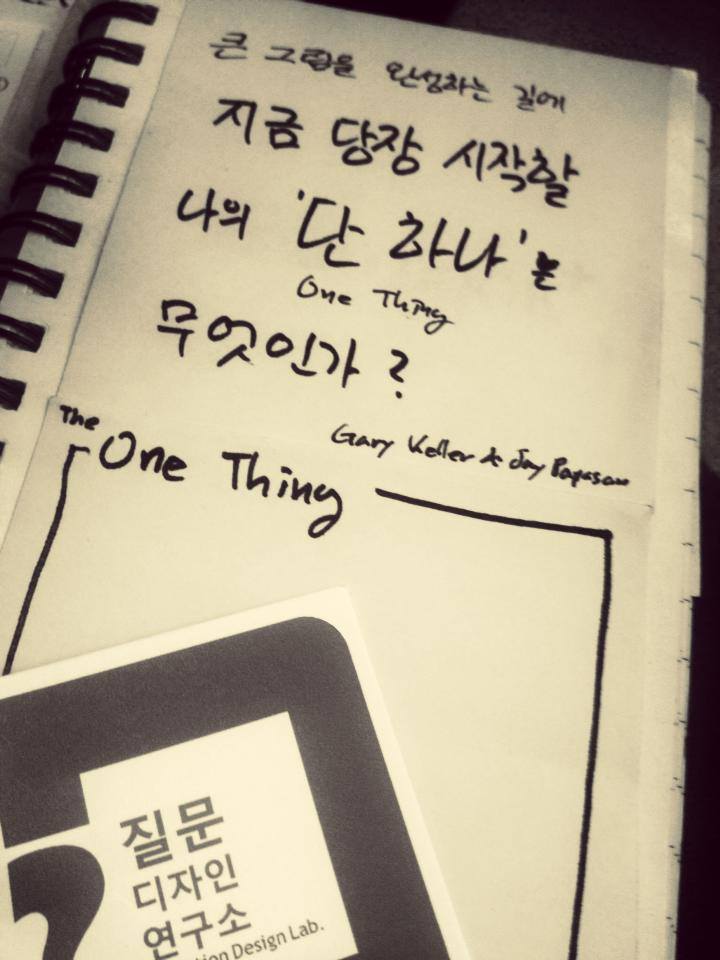 큰 그림을 완성하는 길에
지금 당장 시작할
나의 '단 하나'는
One Thing
무엇인가?
Gary Keller & Jay Papasan
The One Thing
질문
디자인
연구소
Design Lab.